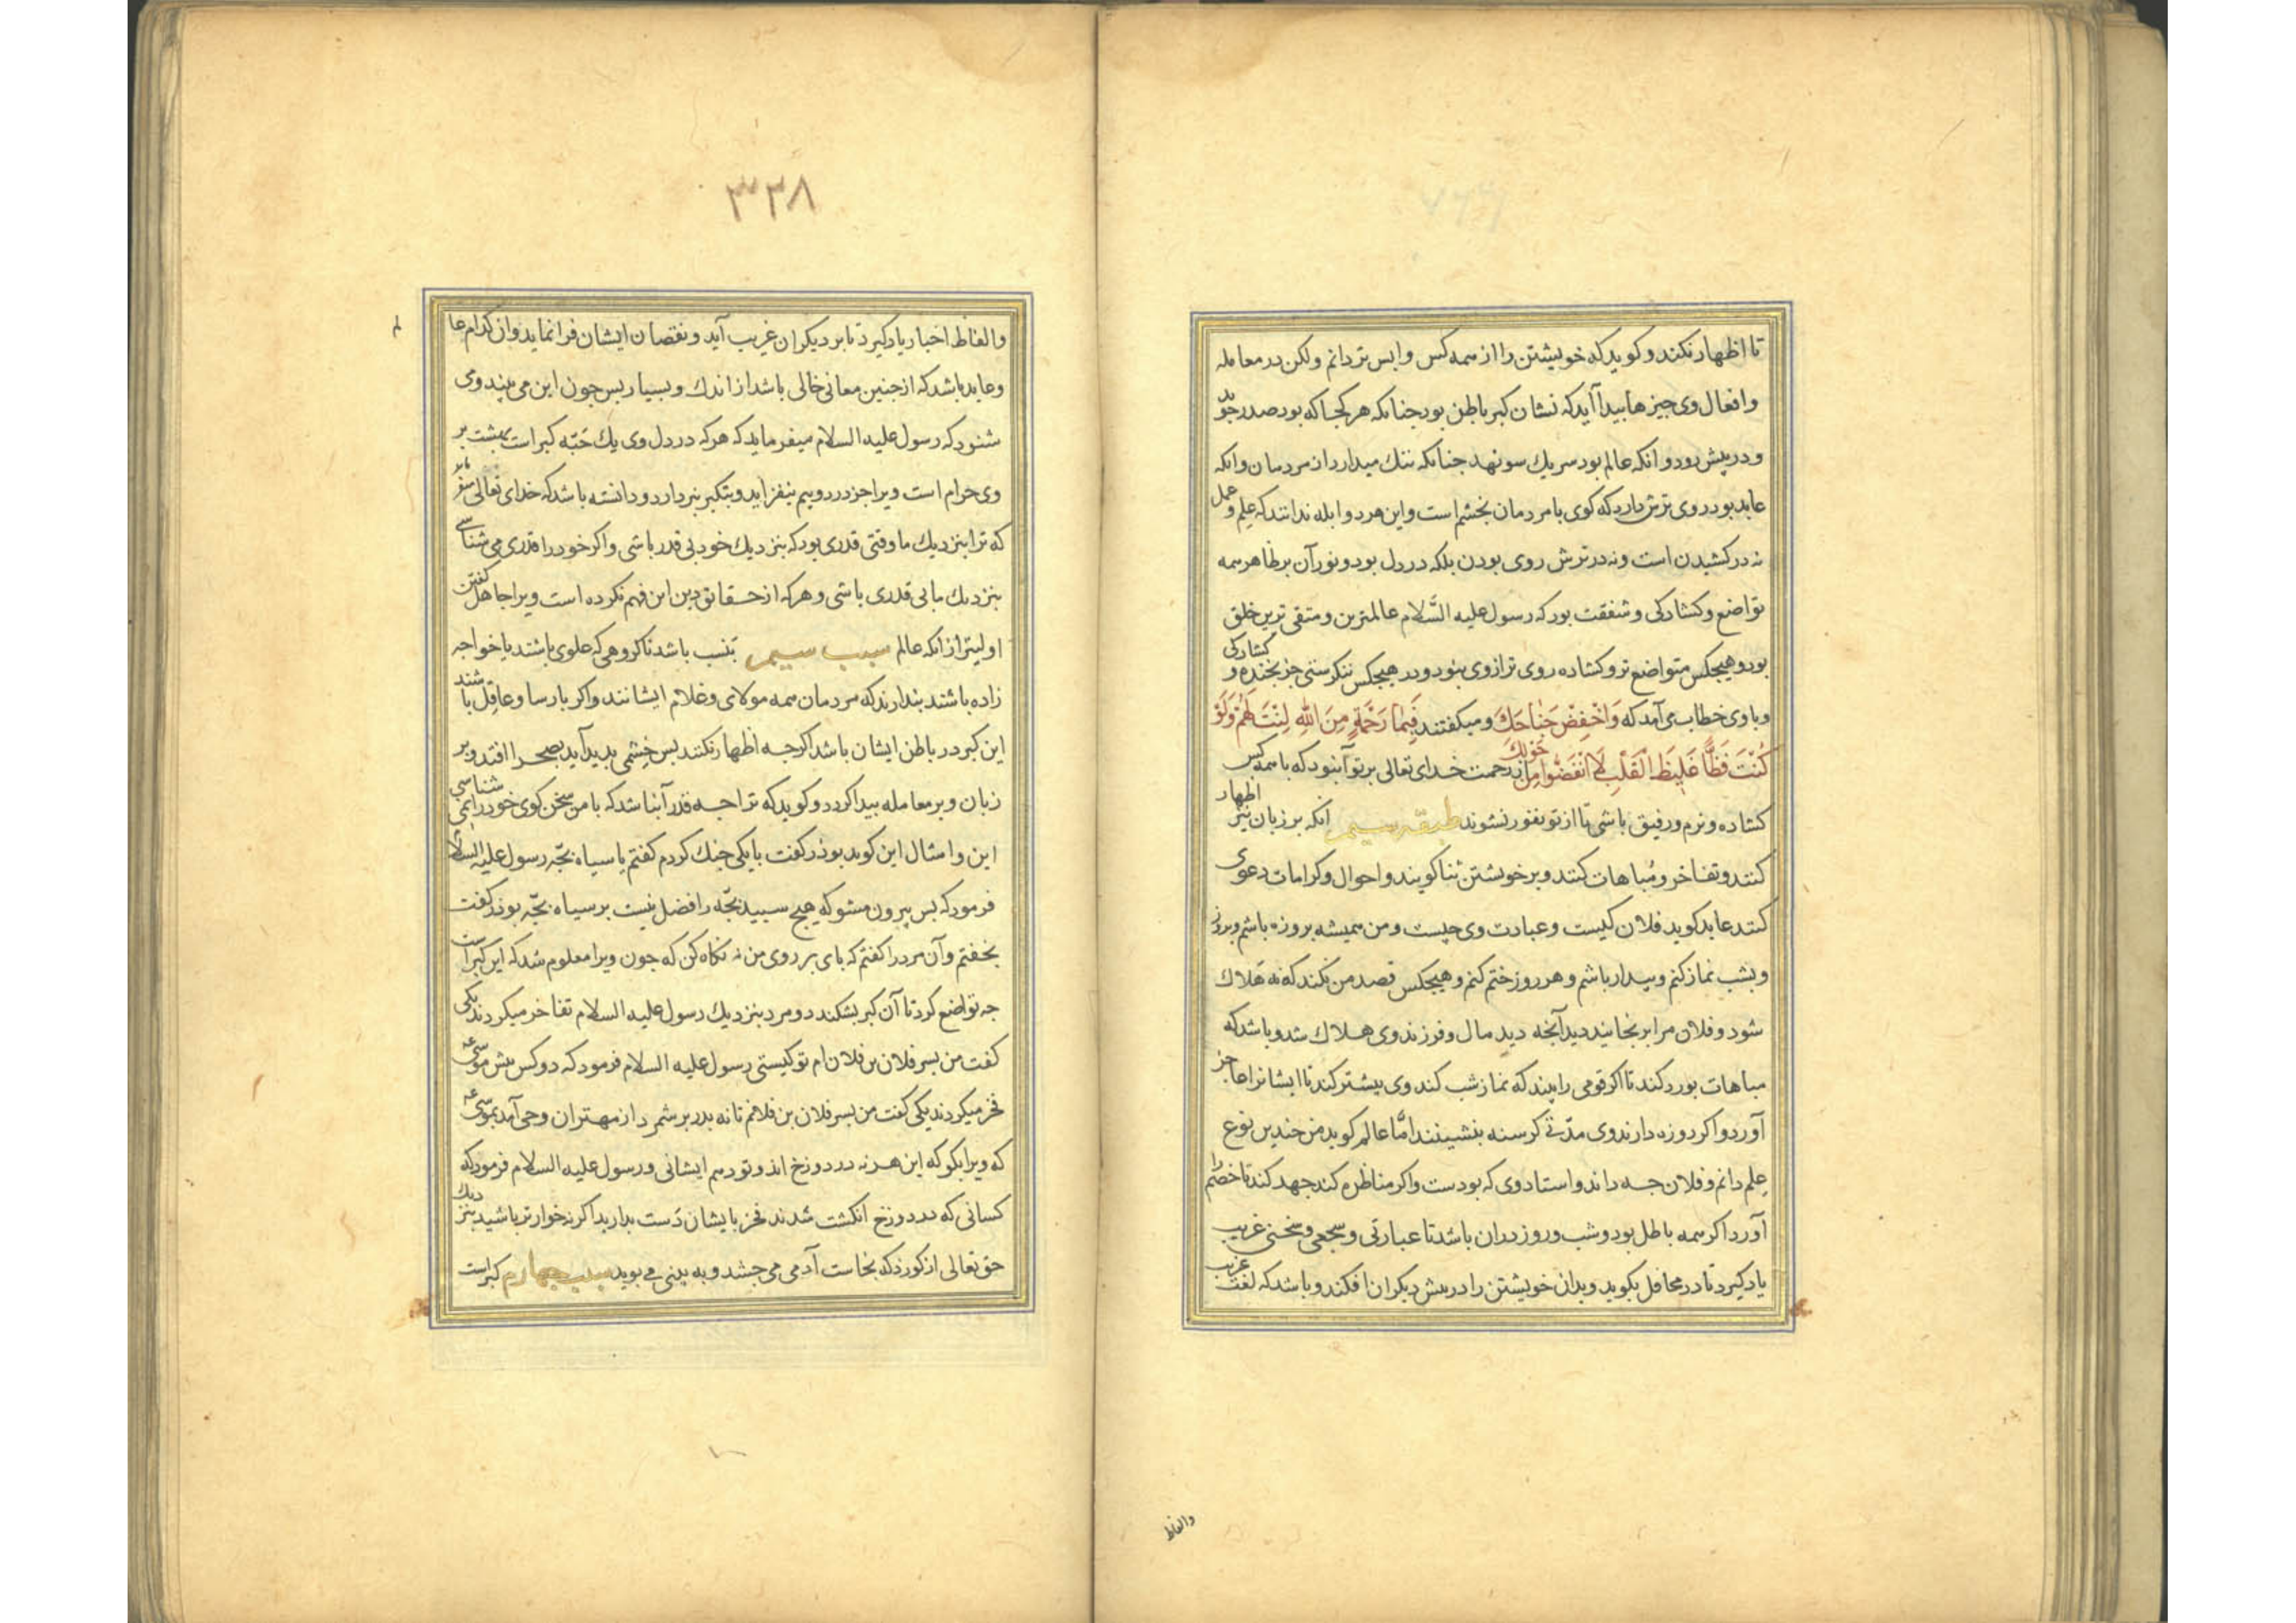 تا اظهار نکند و کوید که خویشتن را از همه کس واپس تر دانم ولکن در معامله
و افعال وی چیزها پیدا آید که نشان کبر باطن بود چنانکه هر کجا که بود صدر جوید
و در پیش رود و انکه عالم بود سر یك سو نهد چنانکه ننك میدارد از مردمان و انکه
عابد بود روی ترش دارد که کوی با مردمان بخشم است و این هر دو ابله ندانند که علم و عمل
نه در کشیدن است و نه در ترش روی بودن بلکه در دل بود و نور آن بر ظاهر همه
تواضع و کشادکی و شفقت بود که رسول علیه السّلام عالمترین و متقی ترین خلق
بود و هیچکس متواضع تر و کشاده روی تر از وی نبود و در هیچکس ننکرستی جز بخنده و کشادکی
و باوی خطاب می آمد که وَاخْفِضْ جَنٰاحَكَ و میکفتند فَبِمٰا رَحْمَةٍ مِنَ اللهِ لِنْتَ لَهُمْ وَلَوْ
كُنْتَ فَظًّا غَلِيظَ الْقَلْبِ لَانْفَضُّوا مِنْ حَوْلِكَ از رحمت خدای تعالی بر تو آن بود که با همه کس
کشاده و نرم و رفیق باشی تا از تو نفور نشوند طبقه سیم انکه بر زبان نیز اظهار
کنند و تفاخر و مُباهات کنند و بر خویشتن ثنا کویند و احوال و کرامات دعوی
کنند عابد کوید فلان کیست و عبادت وی چیست و من همیشه بروزه باشم و بروز
و بشب نماز کنم و بیدار باشم و هر روز ختم کنم و هیچکس قصد من نکند که نه هَلاك
شود و فلان مرا برنجانید دید آنچه دید مال و فرزند وی هلاك شد و باشد که
مباهات بورد کند تا اکر قومی را بیند که نماز شب کند وی بیشتر کند تا ایشانرا عاجز
آورد و اکر روزه دارند وی مدّتی کرسنه بنشینند امّا عالم کوید من چندین نوع
عِلم دانم و فلان چه داند و استاد وی که بودست و اکر مناظره کند جهد کند تا خصم را
آورد اکر همه باطل بود و شب و روز در ان باشد تا عبارتی و سجعی و سخنی غریب
یاد کیرد تا در محافل بکوید و بدان خویشتن را در پیش دیکران افکند و باشد که لغت غریب
والفاظ
۳۳۸
و الفاظ اخبار یاد کیرد تا بر دیکران غریب آید و نقصان ایشان فرا نماید و از کدام عا
لم
و عابد باشد که از چنین معانی خالی باشد از اندك و بسیار پس چون این می بیند و می
شنود که رسول علیه السلام میفرماید که هر که در دل وی یك حَبّه کبر است بهشت بر
وی حرام است ویرا جز درد و بیم نیفزاید و بتکبر نپردازد و دانسته باشد که خدای تعالی میفرماید
که ترا بنزدیك ما وقتی قدری بود که بنزدیك خود بی قدر باشی و اکر خود را قدری می شناسی
بنزدیك ما بی قدری باشی و هر که از حقایق دین این فهم نکرده است ویرا جاهل کفتن
اولیتر از انکه عالم سبب سیم بنسب باشد تا کروهی که علوی باشند یا خواجه
زاده باشند پندارند که مردمان همه مولای و غلام ایشانند و اکر پارسا و عاقل باشند
این کبر در باطن ایشان باشد اکر چه اظهار نکنند پس خشمی پدید آید بصحرا افتد و بر
زبان و بر معامله پیدا کردد و کوید که ترا چه قدر آن باشد که با من سخن کوی خود را نمی شناسی
این و امثال این کوید بوذر کفت با یکی جنك کردم کفتم یا سیاه بچّه رسول علیه السلام
فرمود که بس بیرون مشو که هیچ سپید بچّه را فضل نیست بر سیاه بچّه بوذر کفت
بخفتم و آن مرد را کفتم که پای بر روی من نه نکاه کن که چون ویرا معلوم شد که این کبر است
چه تواضع کرد تا آن کبر بشکند دو مرد بنزدیك رسول علیه السلام تفاخر میکردند یکی
کفت من پسر فلان بن فلان ام تو کیستی رسول علیه السلام فرمود که دو کس پیش موسی عه
فخر میکردند یکی کفت من پسر فلان بن فلانم تا نه پدر بر شمرد از مهتران وحی آمد بموسی عه
که ویرا بکو که این هر نه در دوزخ اند و تو دهم ایشانی و رسول علیه السلام فرمود که
کسانی که در دوزخ انکشت شدند فخر بایشان دَست بدارید اکر نه خوارتر باشید بنزدیك
حق تعالی از کوزد که نجاست آدمی می چشد و به بینی می بوید سبب چهارم کبر است